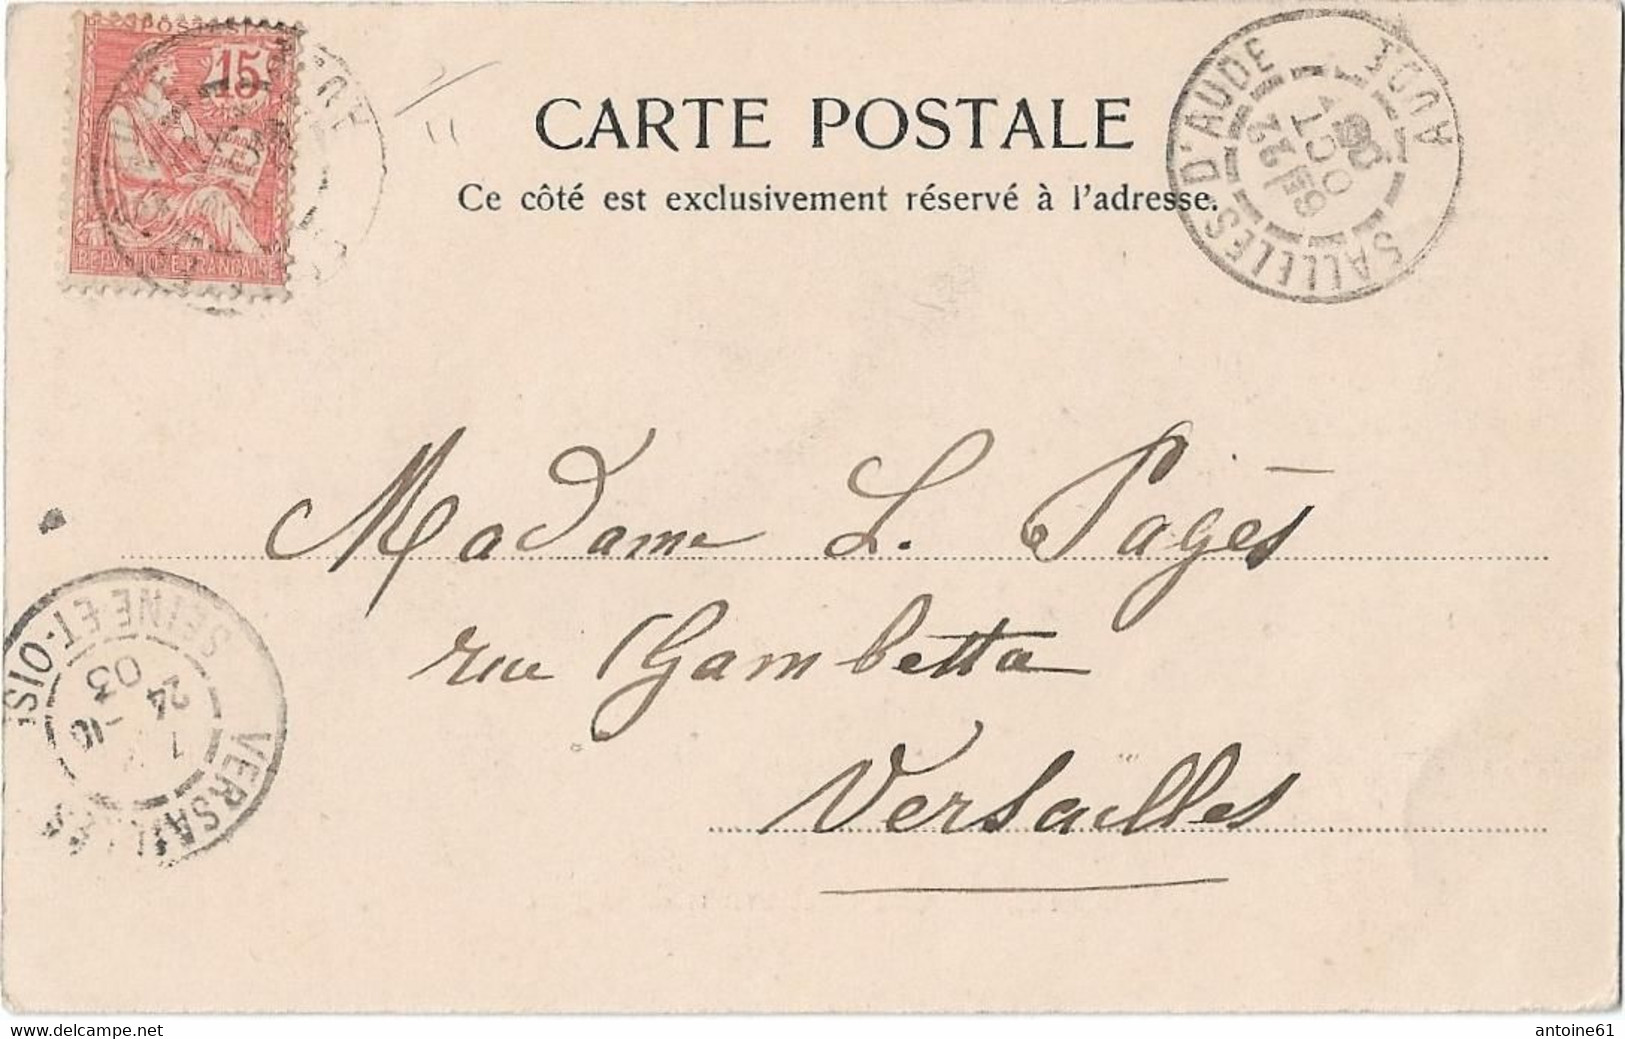 POSTES
15
REPUBLIQUE FRANCAISE
CARTE POSTALE
Ce côté est exclusivement réservé à l'adresse.
SALLELES D'AUDE
AUDE
22
OCT
Madame L. Pagès
rue Gambetta
Versailles
VERSAILLES
SEINE-ET-OISE
24
03
https://www.delcampe.net
antoine61